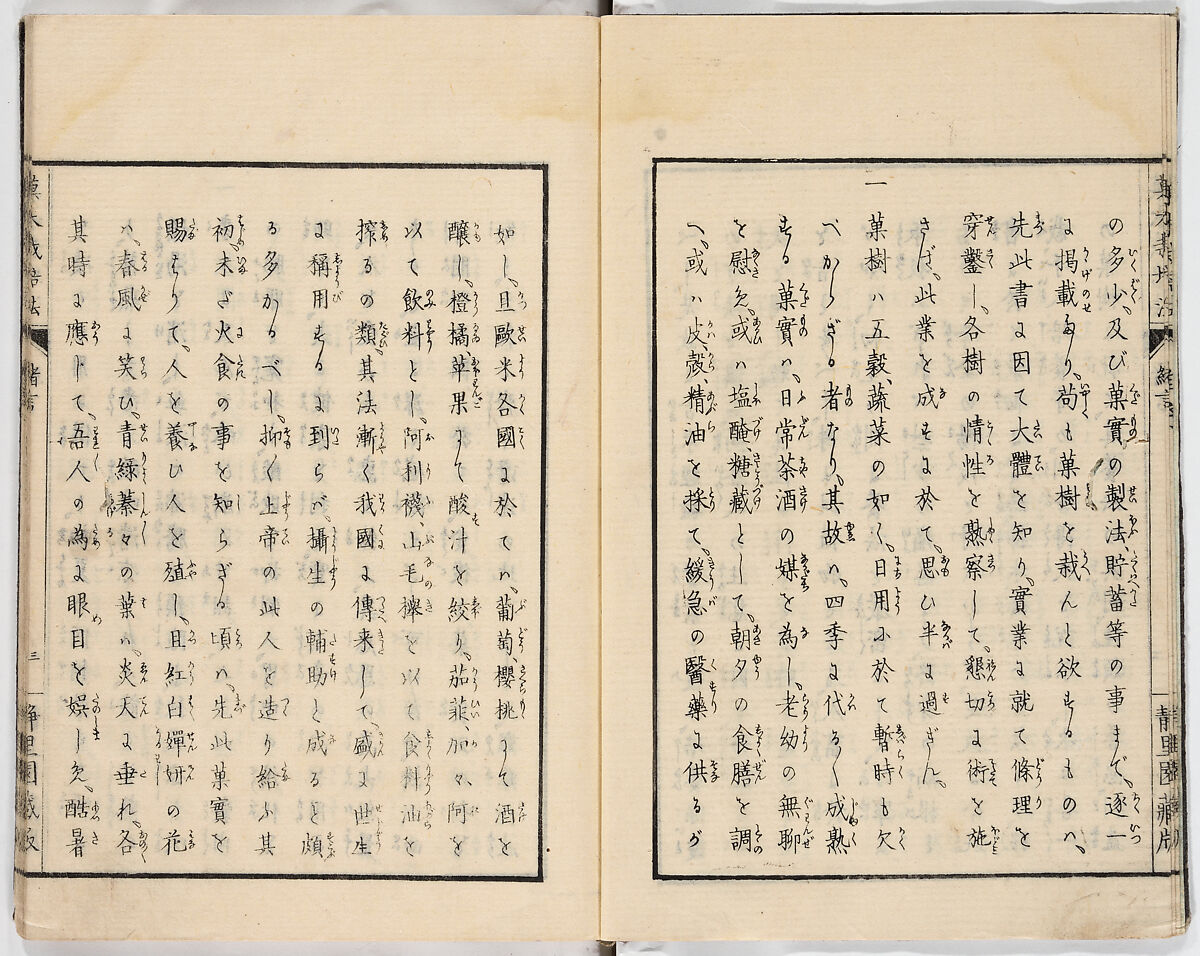 の多少、及び菓實の製法、貯蓄等の事まで、逐一
に掲載せり、苟も菓樹を栽んと欲するものハ、
先此書に因て大體を知り、實業に就て條理を
穿鑿し、各樹の情性を熟察して、懇切に術を施
さば、此業を成すに於て、思ひ半に過ぎん、
一
菓樹ハ五穀、蔬菜の如く、日用に於て暫時も欠
べからざる者なり、其故ハ、四季に代る〱成熟
する菓實ハ、日常茶酒の媒を為し、老幼の無聊
を慰め、或ハ塩醃、糖藏として、朝夕の食膳を調
へ、或ハ皮、殼、精油を採て、緩急の醫藥に供るが
菓木栽培法
緒言
静里園藏版
如し、且歐米各國に於てハ、葡萄、櫻桃にて酒を
醸し、橙、橘、苹果にて酸汁を絞り、茄菲、加々阿を
以て飲料とし、阿利襪、山毛欅を以て食料油を
搾るの類、其法漸く我國に傳来して、盛に世生
に稱用するに到らバ、攝生の輔助と成ると頗
る多かるべし、抑〻上帝の此人を造り給ふ其
初、未ざ火食の事を知らざる頃ハ、先此菓實を
賜はりて、人を養ひ人を殖し、且紅白嬋妍の花
ハ、春風に笑ひ、青緑蓁々の葉ハ、炎天に垂れ、各
其時に應じて、吾人の為に眼目を娯しめ、酷暑
菓木栽培法
緒言
三
静里園藏版